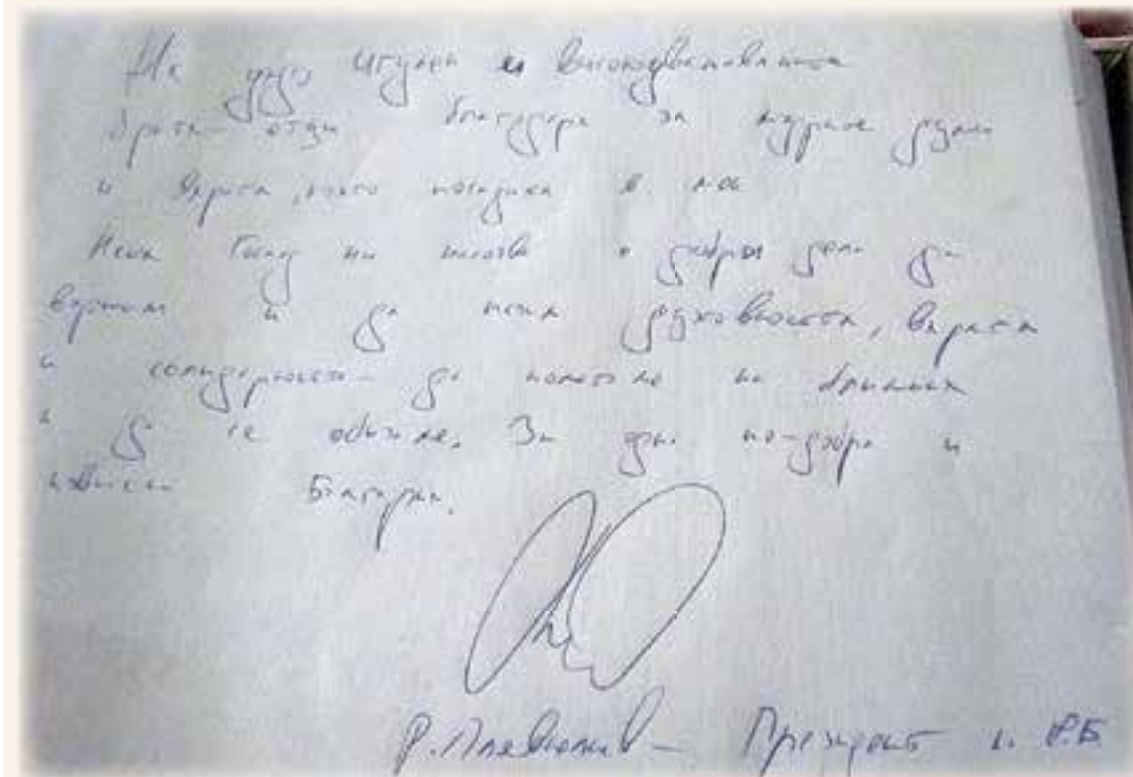 На дядо игумен и високоуважаемите
братя - отци благодаря за мъдрите думи
и вярата, която показаха в мен
Нека Господ ни помага добри дела да
вършим и да пазим духовността, вярата
и солидарността - да помагаме на ближния
и да се обичаме. За една по-добра и
България.
Р. Плевнелиев - Президент на Р.Б